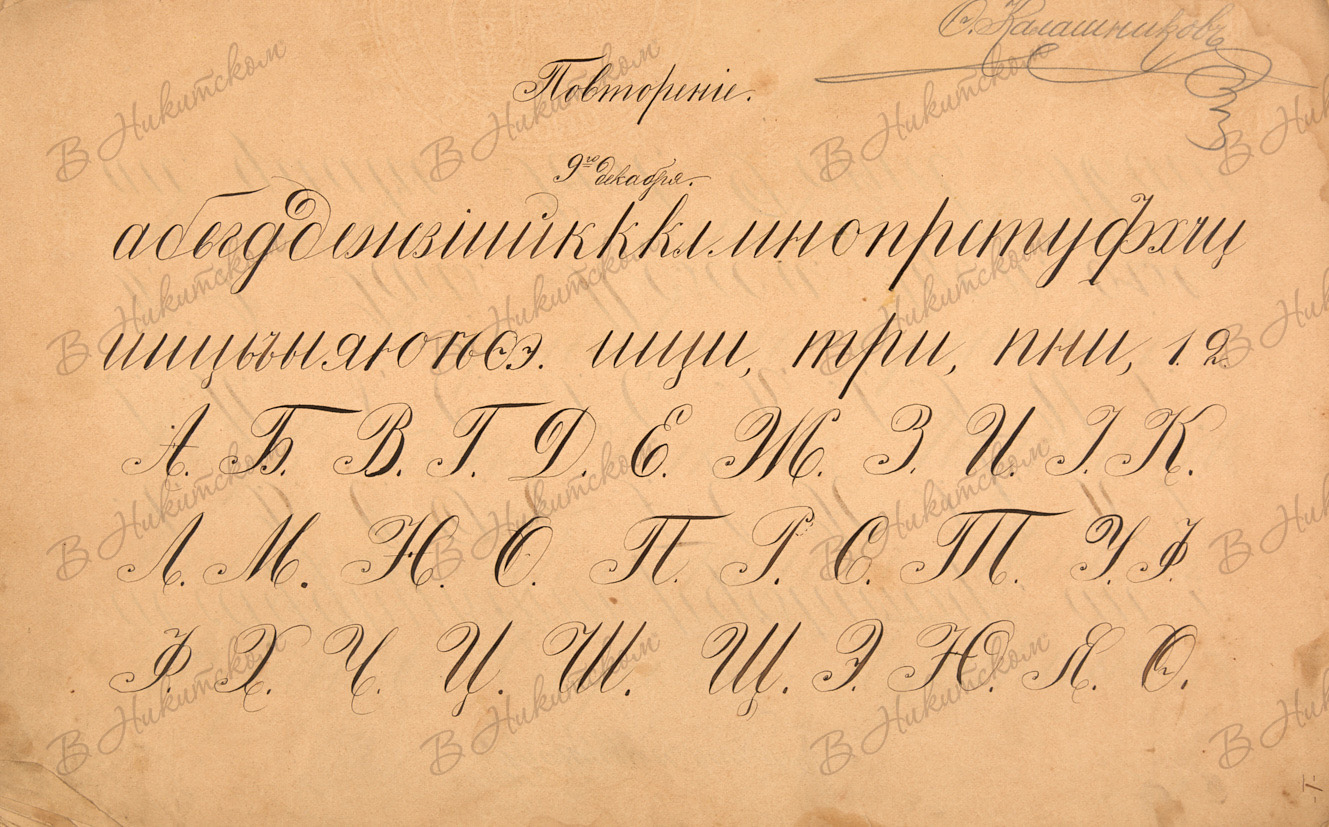 Ѳ. Калашниковъ
Повтореніе.
9го декабря.
абвгдðежзіийкккл.мнопрстуфхчц
шщъыьяюѣѳэ. ищи, три, пни, 1. 2.
А. Б. В. Г. Д. Е. Ж. З. И. І. К.
Л. М. Н. О. П. Р. С. Т. У. Ф.
Ф. Х. Ч. Ц. Ш. Щ. Э. Ю. Я. Ѳ.
В Никитском